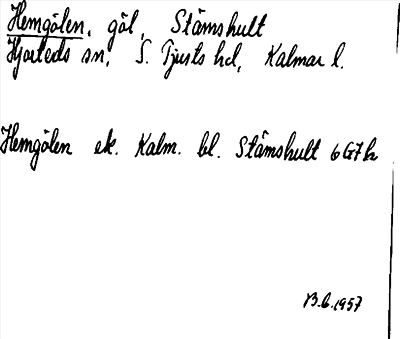 Hemgölen, göl, Stämshult
Hjorteds sn, S. Tjusts hd, Kalmar l.
Hemgölen ek. Kalm. bl. Stämshult 6G7h
B.L. 1957